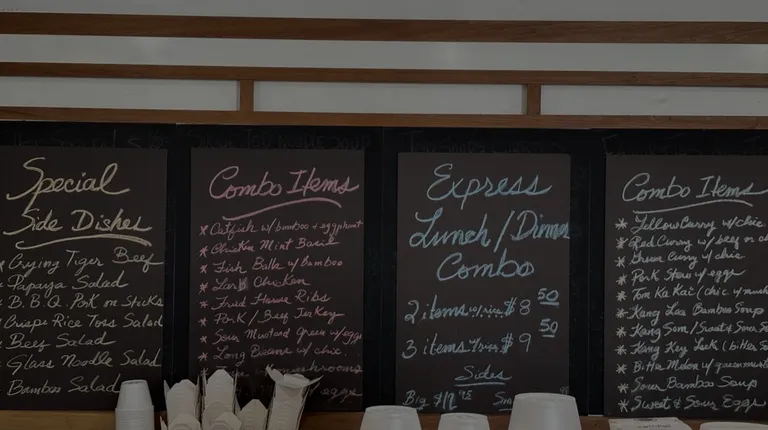 Special
Side Dishes
* Crying Tiger Beef
* Papaya Salad
* B.B.Q. Pork on Sticks
* Crispe Rice Toss Salad
* Beef Salad
* Glass Noodle Salad
Bamboo Salad
Combo Items
* Catfish w/bamboo + eggplant
* Chicken Mint Basil
* Fish Balls w/Bamboo
* Chicken
* Fried House Ribs
* Pork / Beef Jerkey
* Sour Mustard Green w/eggs
* Long Beans w/ chic
mushrooms
eggs
Express
Lunch / Dinner
Combo
2 items w/rice $8 50
3 items w/rice $9 50
Sides
Big
Combo Items
* Yellow Curry w/chic
* Red Curry w/ beef or
* Green Curry w/ chic
* Pork Stew w/ eggs
* Tom Ka Kai (chic w/
* Kang Lea Bamboo Soup
* Kang Som / Sweet & Sour
* Kang Key Leck (bitter
* Bitter Melon w/
* Sour Bamboo Soup
* Sweet & Sour Eggs